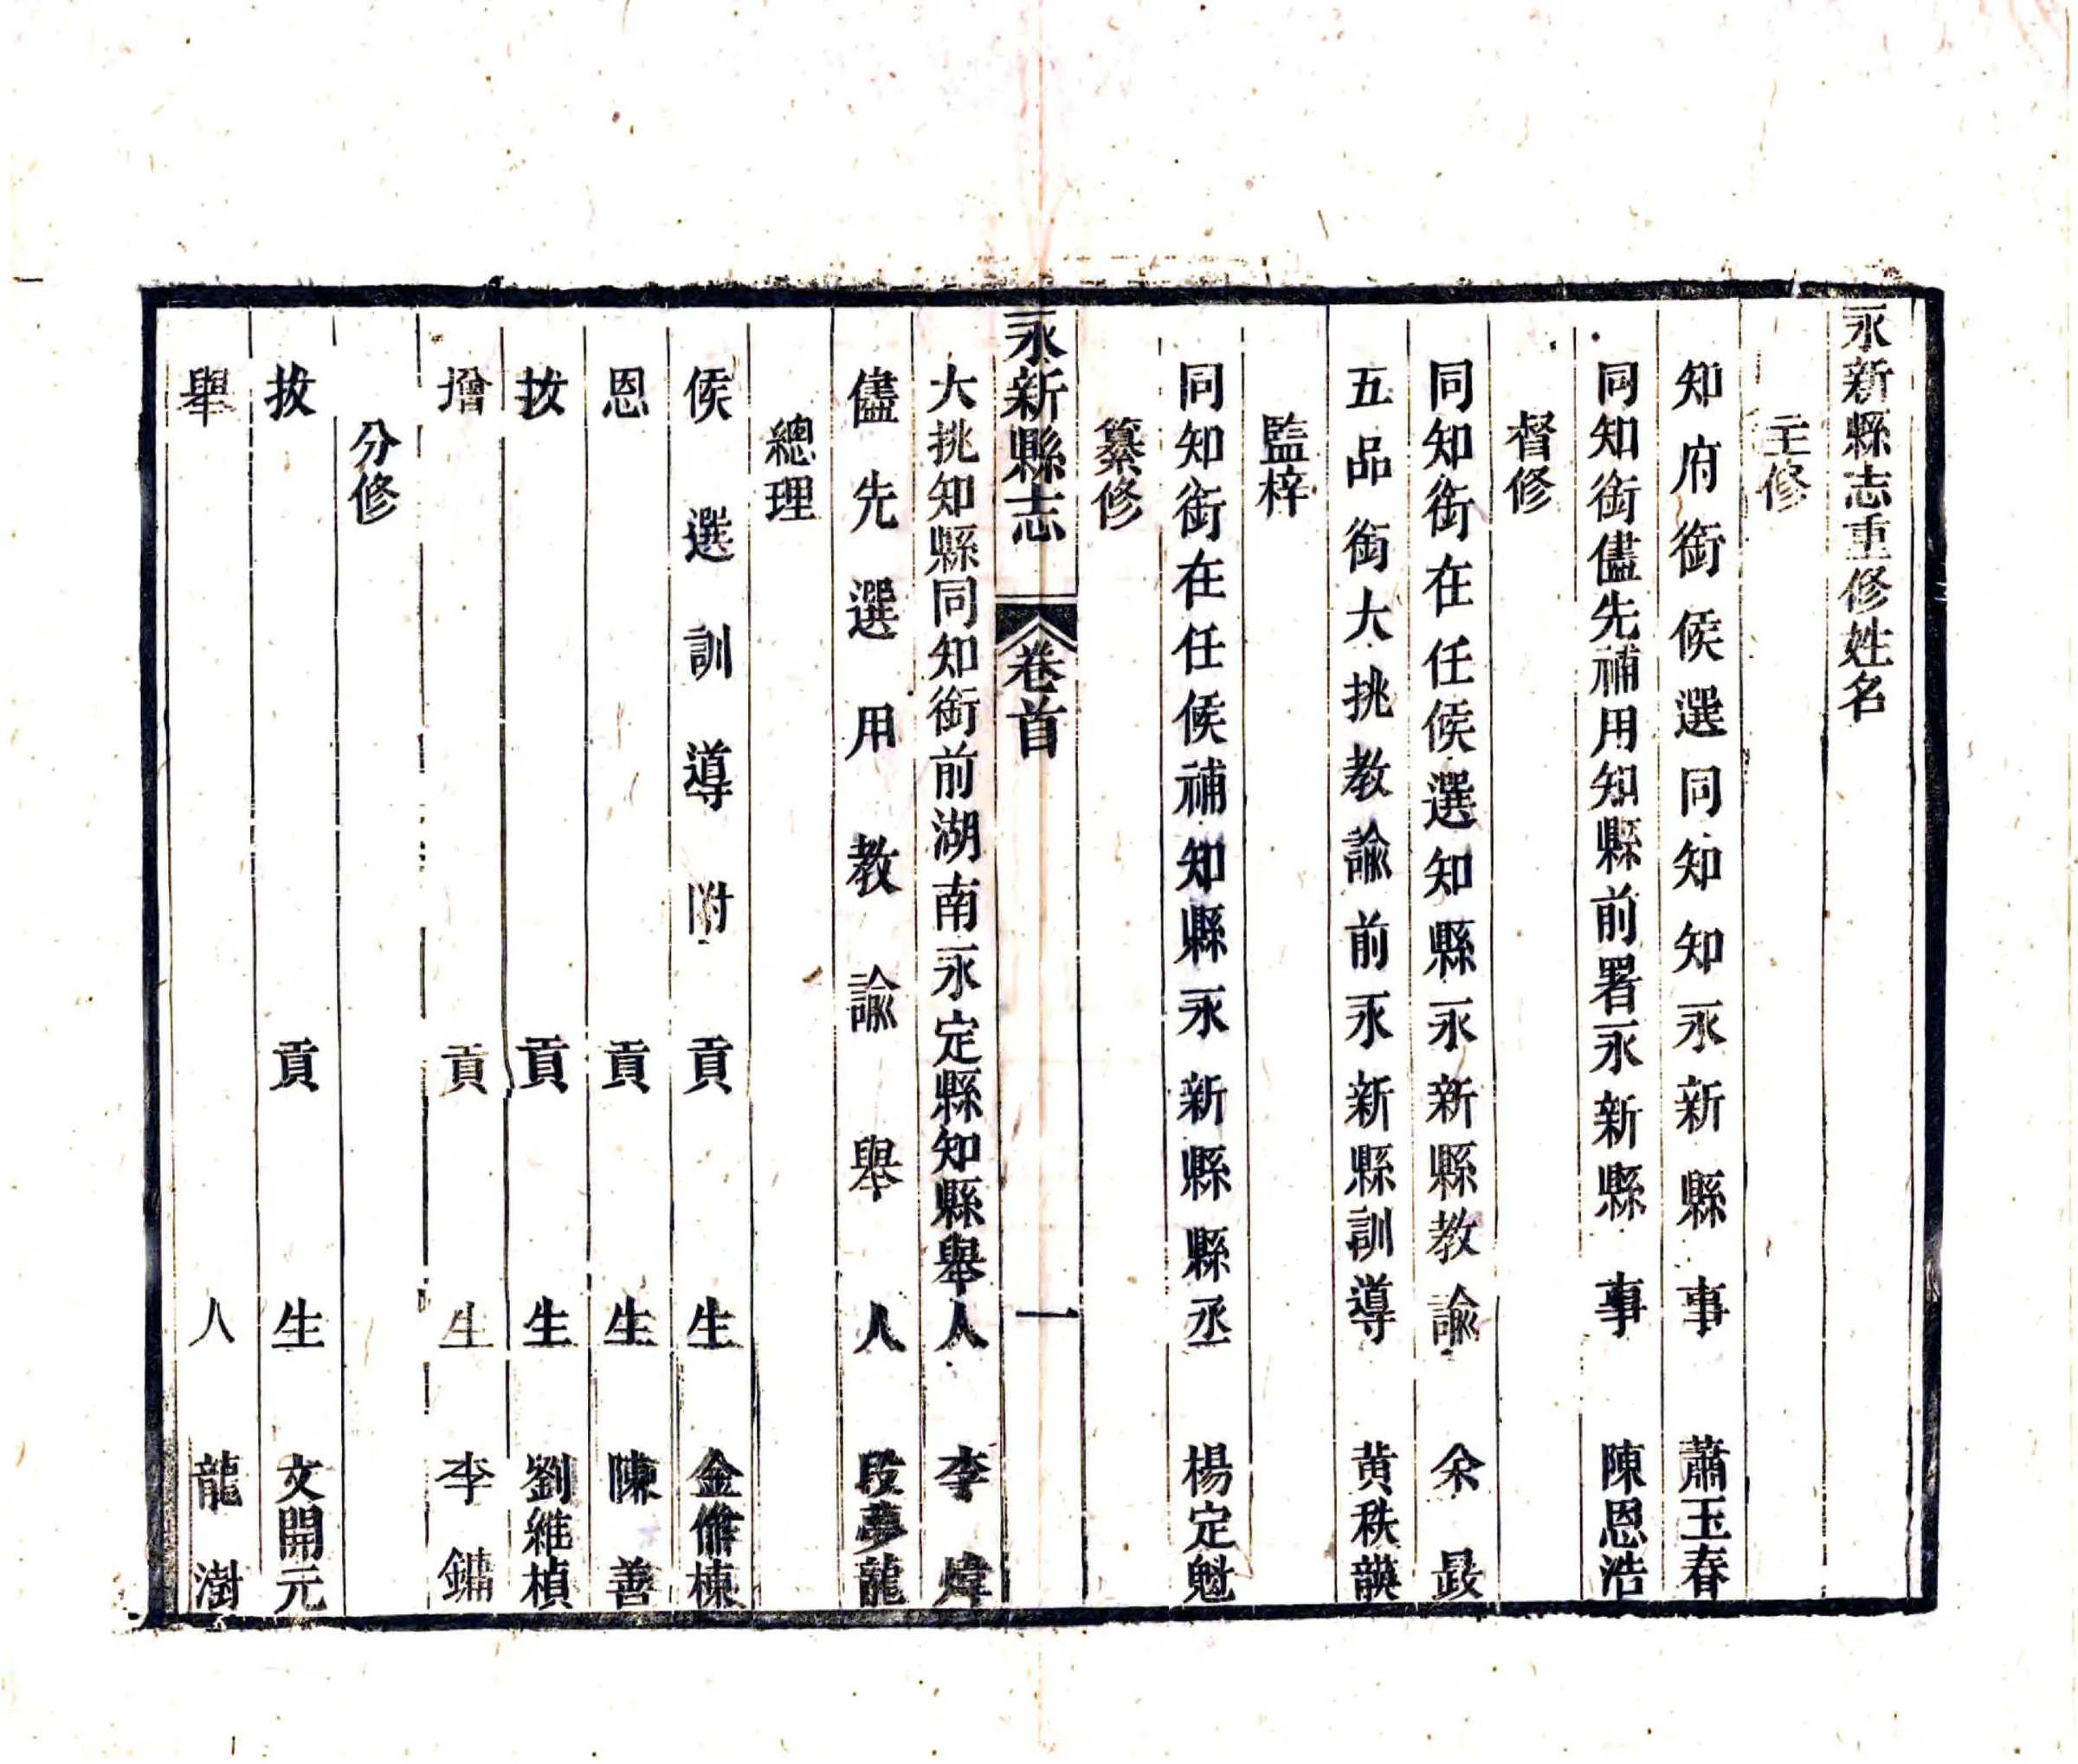 永新縣志重修姓名
主修
知府銜候選同知知永新縣事 蕭玉春
同知銜儘先補用知縣前署永新縣事 陳恩浩
督修
同知銜在任候選知縣永新縣教諭 余最
五品銜大挑教諭前永新縣訓導 黄秩韺
監梓
同知銜在任候補知縣永新縣縣丞 楊定魁
纂修
永新縣志 卷首 一
大挑知縣同知銜前湖南永定縣知縣舉人 李煒
儘先選用教諭舉人 段夢龍
總理
候選訓導附貢生 金脩棟
恩貢生 陳善
拔貢生 劉維楨
增貢生 李鏞
分修
拔貢生 文開元
舉人 龍澍